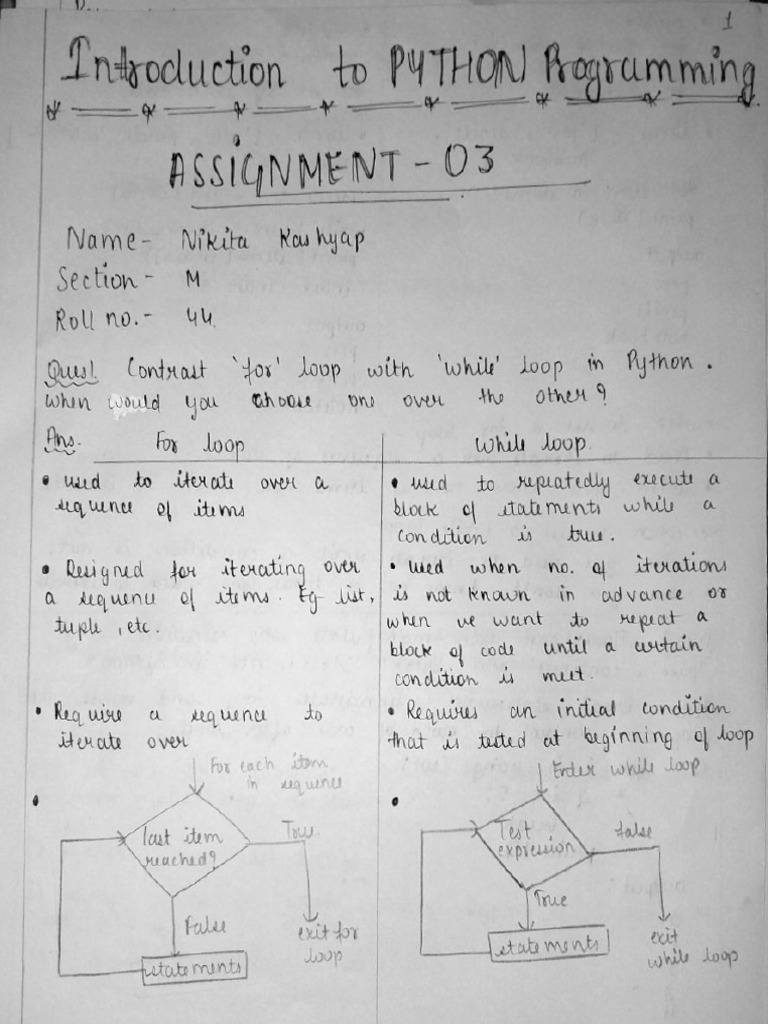 1
Introduction to PYTHON Programming
ASSIGNMENT - 03
Name - Nikita Kashyap
Section - M
Roll no. - 44.
Ques1. Contrast 'for' loop with 'while' loop in Python.
When would you choose one over the other?
Ans.
For loop
• used to iterate over a
sequence of items
• Designed for iterating over
a sequence of items. Eg list,
tuple, etc.
• Require a sequence to
iterate over
For each item
in sequence
•
last item
reached?
True
False
exit for
loop
statements
While loop.
• used to repeatedly execute a
block of statements while a
condition is true.
• used when no. of iterations
is not known in advance or
when we want to repeat a
block of code until a certain
condition is meet.
• Requires an initial condition
that is tested at beginning of loop
Enter while loop
•
Test
expression
false
True
exit
while loop
statements